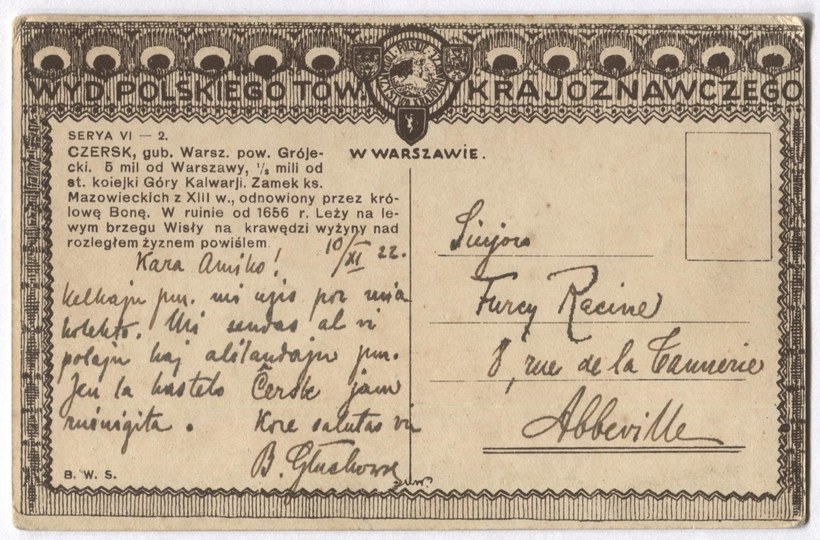 WYD. POLSKIEGO TOW. KRAJOZNAWCZEGO
W WARSZAWIE.
SERYA VI — 2.
CZERSK, gub. Warsz. pow. Gróje-
cki. 5 mil od Warszawy, ½ mili od
st. kolejki Góry Kalwarji. Zamek ks.
Mazowieckich z XIII w., odnowiony przez kró-
lowę Bonę. W ruinie od 1656 r. Leży na le-
wym brzegu Wisły na krawędzi wyżyny nad
rozległem żyznem powiślem
10/XI 22.
Kara Amiko!
Kelkajn pm. mi uzis por mia
kolekto. Mi sendas al vi
polajn kaj alilandajn pm.
Jen la kastelo Ĉersk jam
ruinigita. Kore salutas vin
B.
B. W. S.
Sinjoro
Furcy Racine
8, rue de la Tannerie
Abbeville